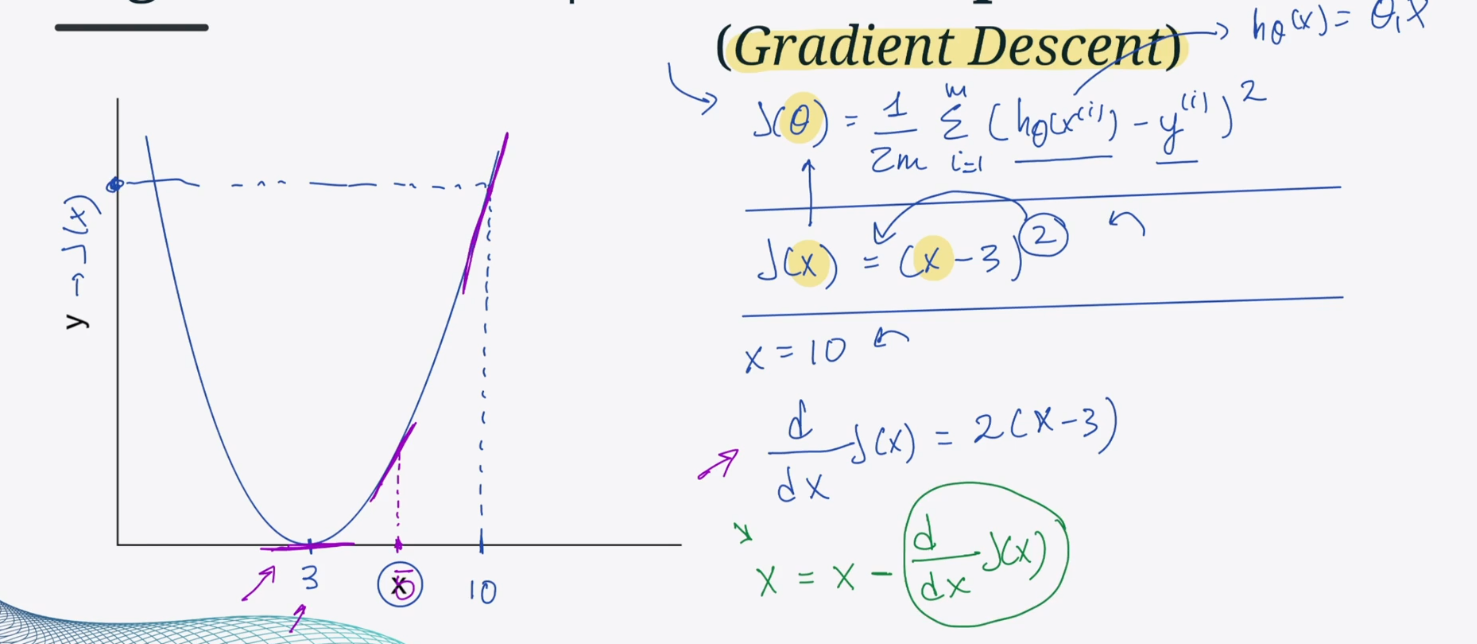 (Gradient Descent)
hθ(x) = θ₁x
J(θ) = 1/2m Σ i=1 m (hθ(x⁽ⁱ⁾) - y⁽ⁱ⁾)²
J(x) = (x-3)²
x = 10
d/dx J(x) = 2(x-3)
x = x - d/dx J(x)
y → J(x)
3 x 5 10